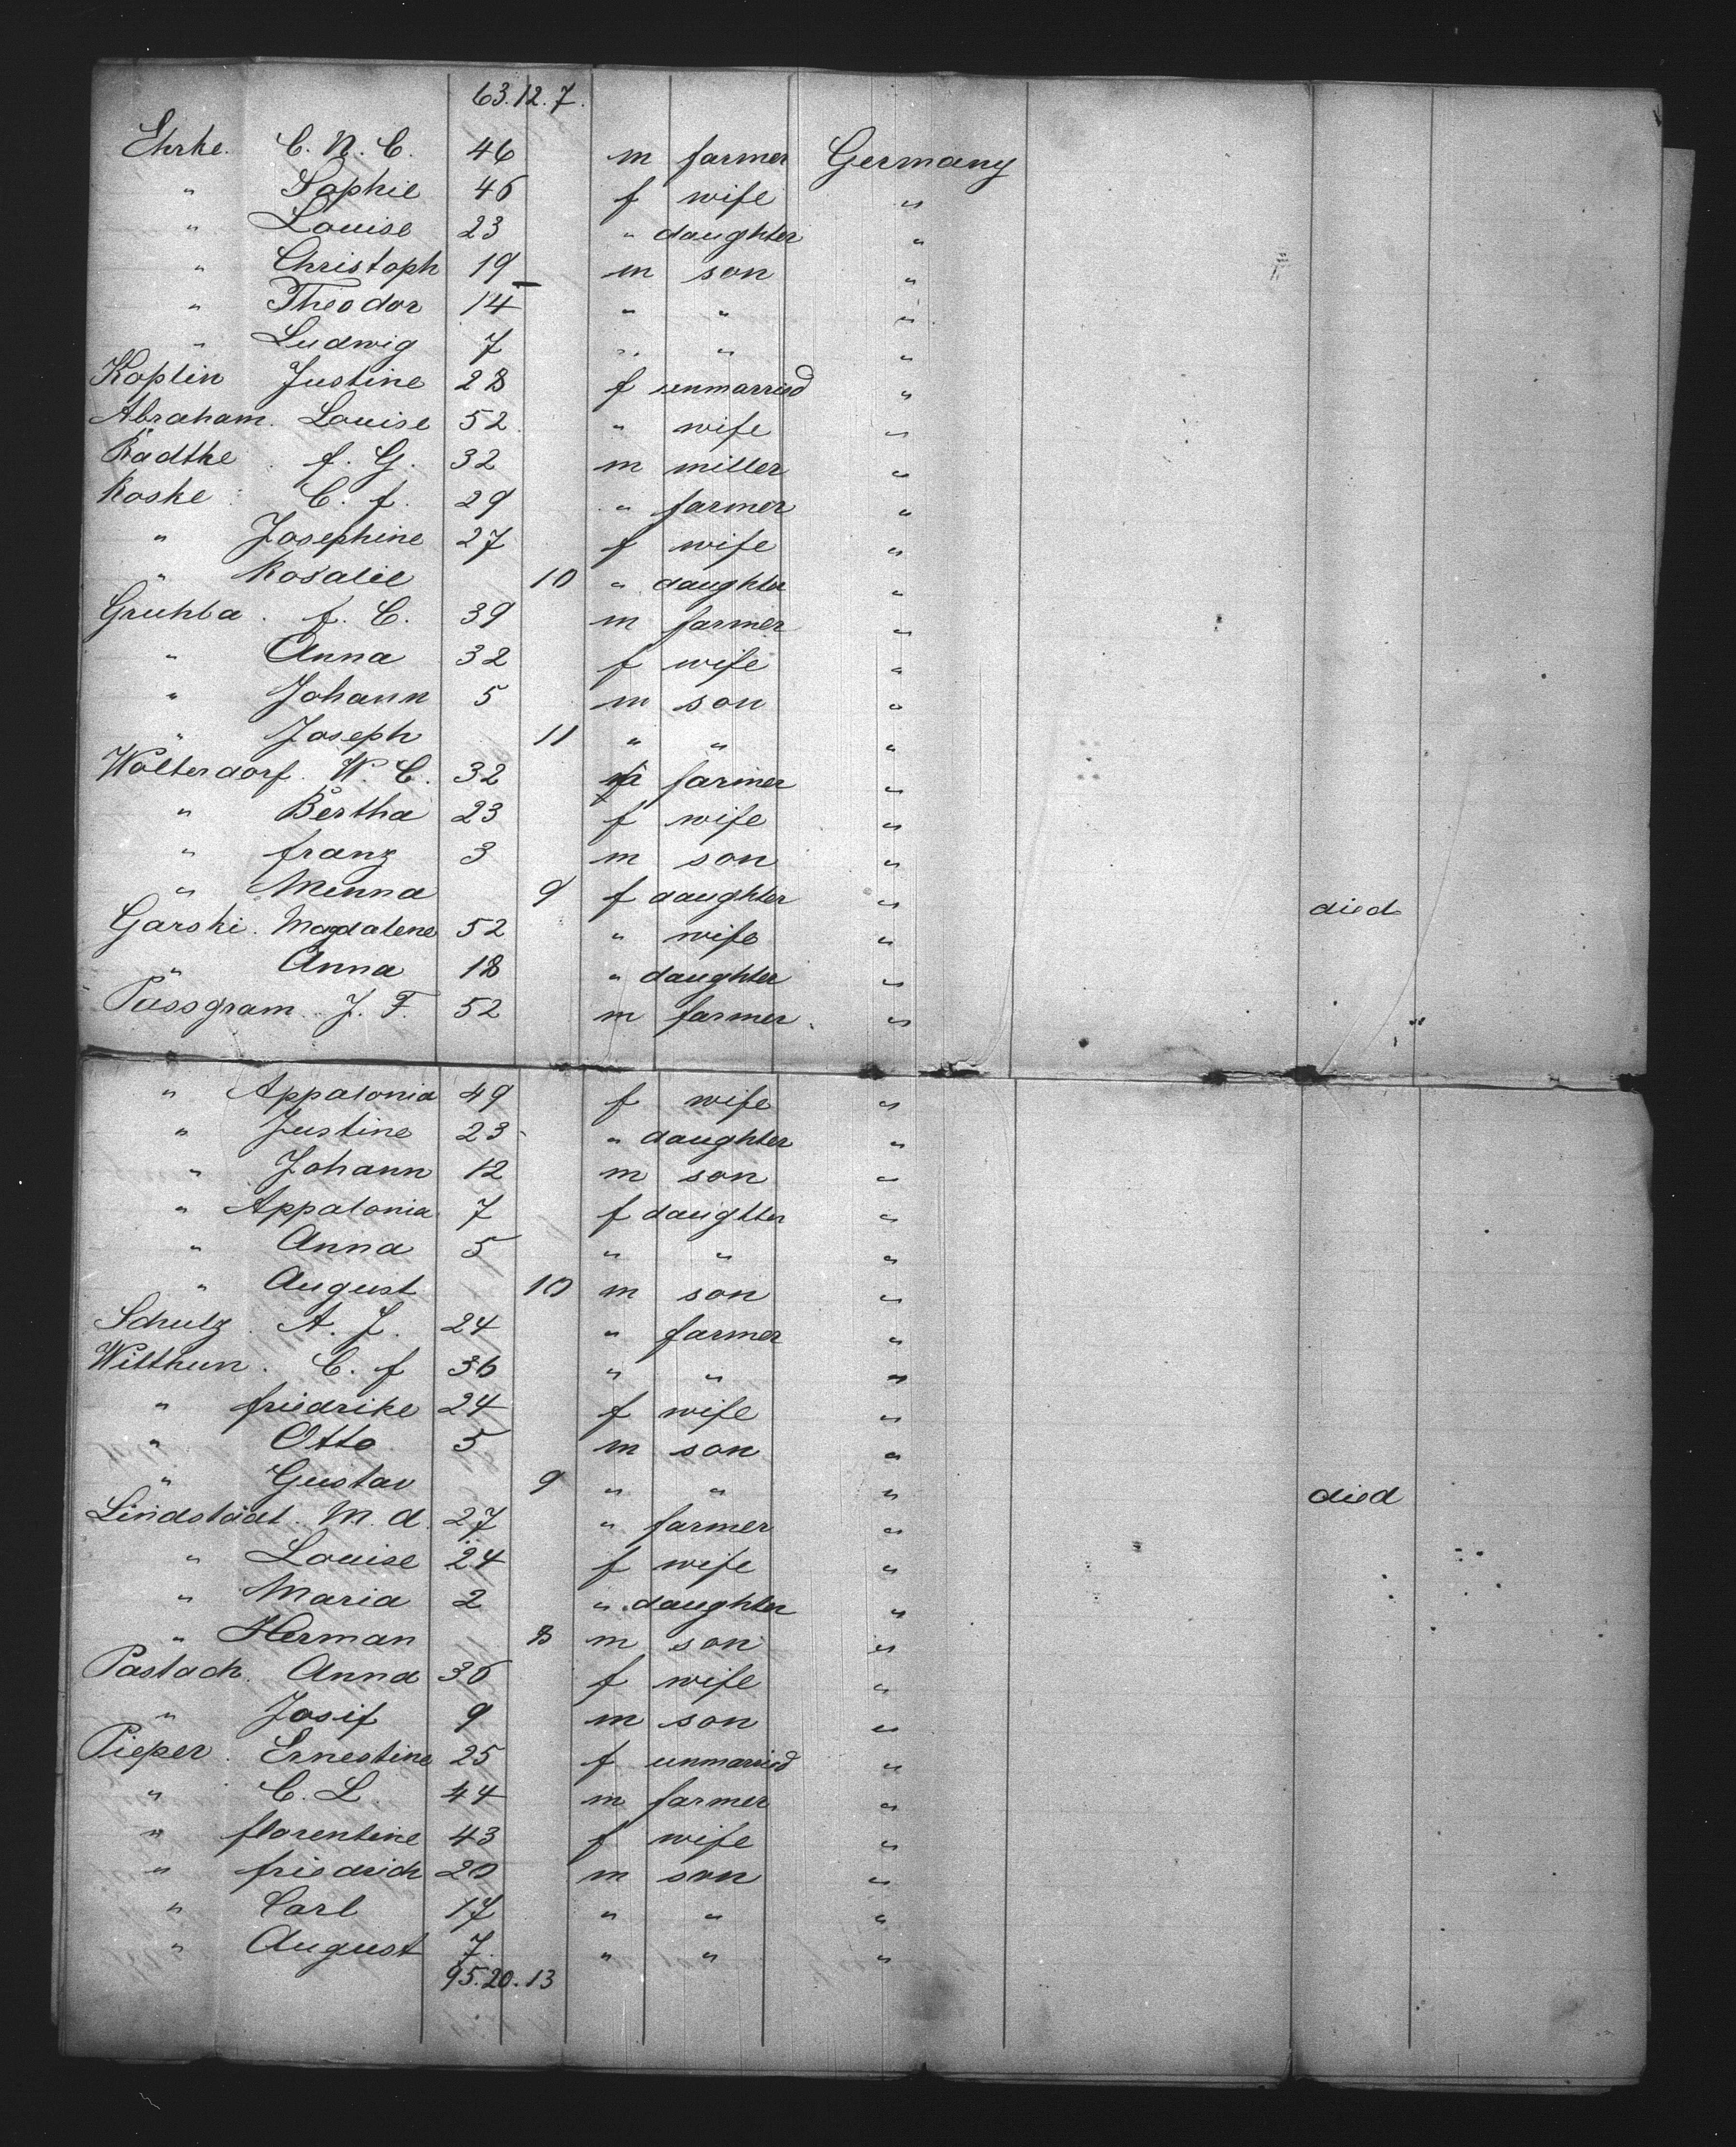 63.12.7.
Ehrke. C. N. C. 46 m farmer Germany
" Sophie 46 f wife "
" Louise 23 " daughter "
" Christoph 19 m son "
" Theodor 14 " " "
" Ludwig 7 " " "
Koplin Justine 28 f unmarried "
Abraham. Louise 52. " wife "
Radthe. f. G. 32 m miller "
Koske C. f. 29 " farmer "
" Josephine 27 f wife "
" Rosalie 10 " daughter "
Gruhba. f. C. 39 m farmer "
" Anna 32 f wife "
" Johann 5 m son "
" Joseph 11 " " "
Wolterdorf. W. C. 32 m farmer "
" Bertha 23 f wife "
" franz 3 m son "
" Menna 9 f daughter " died
Garski. Magdalene 52 " wife "
" Anna 18 " daughter "
Passgram. J. F. 52 m farmer. "
" Appalonia 49 f wife "
" Justine 23 " daughter "
" Johann 12 m son "
" Appalonia 7 f daughter "
" Anna 5 " " "
" August 10 m son "
Schulz. A. J. 24 " farmer "
Witthun. C. f 36 " " "
" friedrike 24 f wife "
" Otto 5 m son "
" Gustav 9 " " " died
Lindstädt. M. A. 27 " farmer "
" Louise 24 f wife "
" Maria 2 " daughter "
" Herman 8 m son "
Pastach. Anna 36 f wife "
" Josif 9 m son "
Pieper. Ernestine 25 f unmarried "
" C. L. 44 m farmer "
" florentine 43 f wife "
" friedrich 20 m son "
" Carl 17 " " "
" August 7. " " "
95.20.13